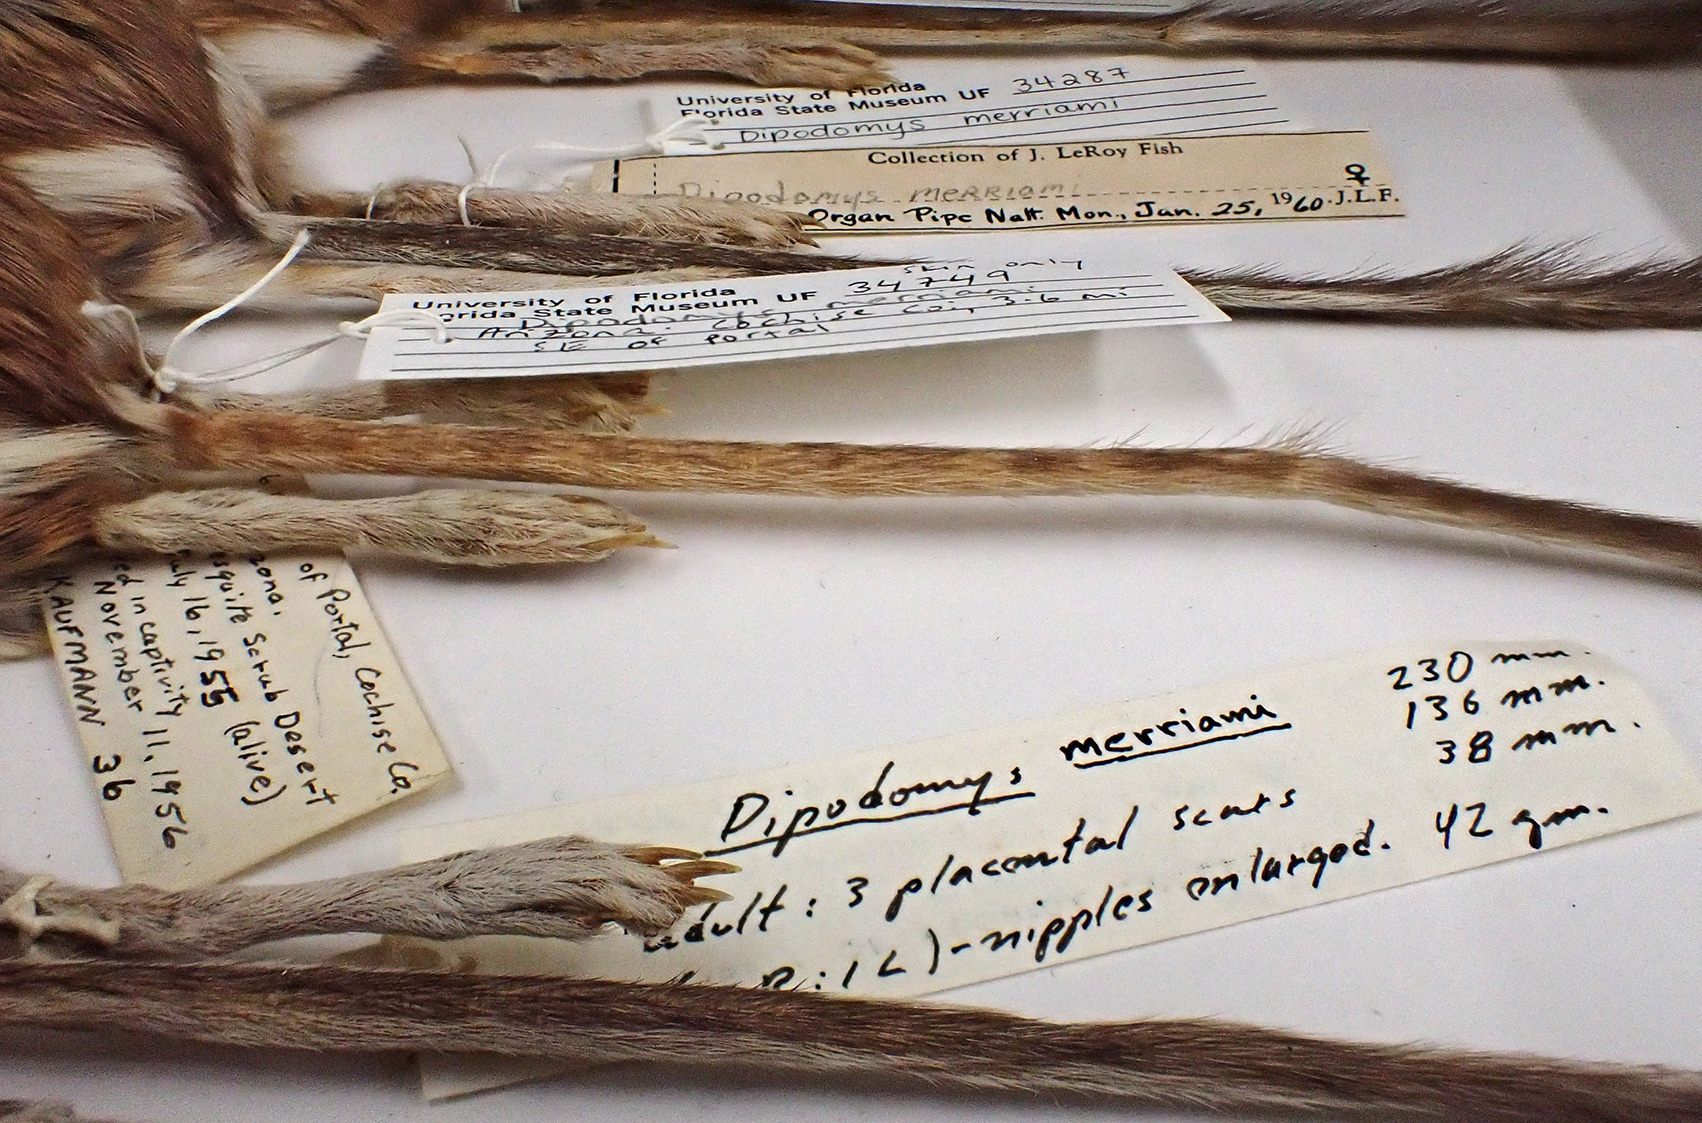 University of Florida
Florida State Museum UF 34287
Dipodomys merriami
Collection of J. LeRoy Fish
♀
Dipodomys merriami
Organ Pipe Natl. Mon., Jan. 25, 1960. J.L.F.
skin only
University of Florida
Florida State Museum UF 34749
Dipodomys merriami
Arizona: Cochise Co., 3.6 mi
SE of Portal
of Portal, Cochise Co.
zona.
esquite Scrub Desert
uly 16, 1955 (alive)
ed in captivity 11, 1956
November
KAUFMANN 36
Dipodomys merriami
230 mm.
136 mm.
38 mm.
adult: 3 placental scars
R:1L)-nipples enlarged. 42 gm.